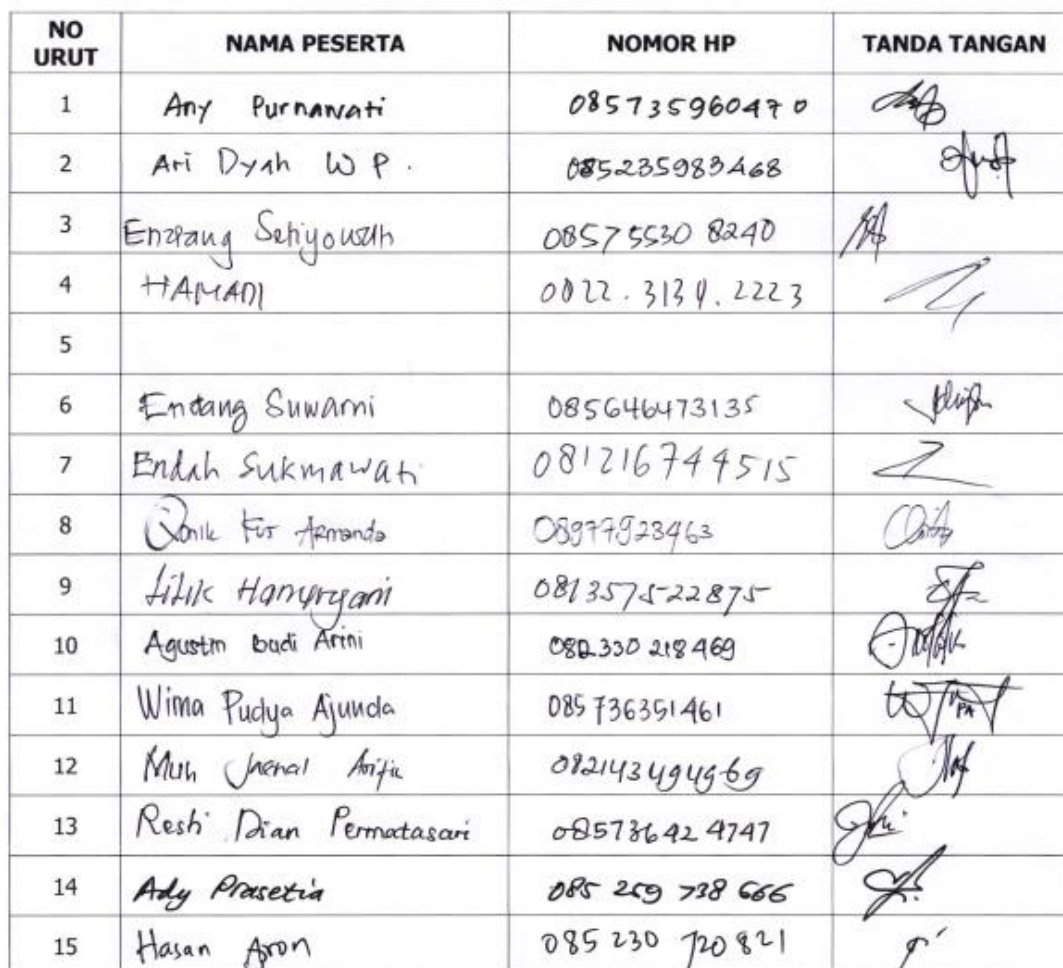 NO URUT NAMA PESERTA NOMOR HP TANDA TANGAN
1 Any Purnawati 085735960470
2 Ari Dyah W P. 085235983468
3 Setiyowati 08575530 8240
4 HAMADI
5
6 Endang Suwarni 085646473135
7 Endah Sukmawati 081216744515
8 Armanda 08977923463
9 Lilik 081357522875
10 Agustin Budi Arini 082330 218469
11 Wima Pudya Ajunda 085736351461
12 Muh Arifin 082143494969
13 Resti Dian Permatasari 085736424747
14 Ady Prasetia 085 259 738 666
15 Hasan Aron 085 230 720 821